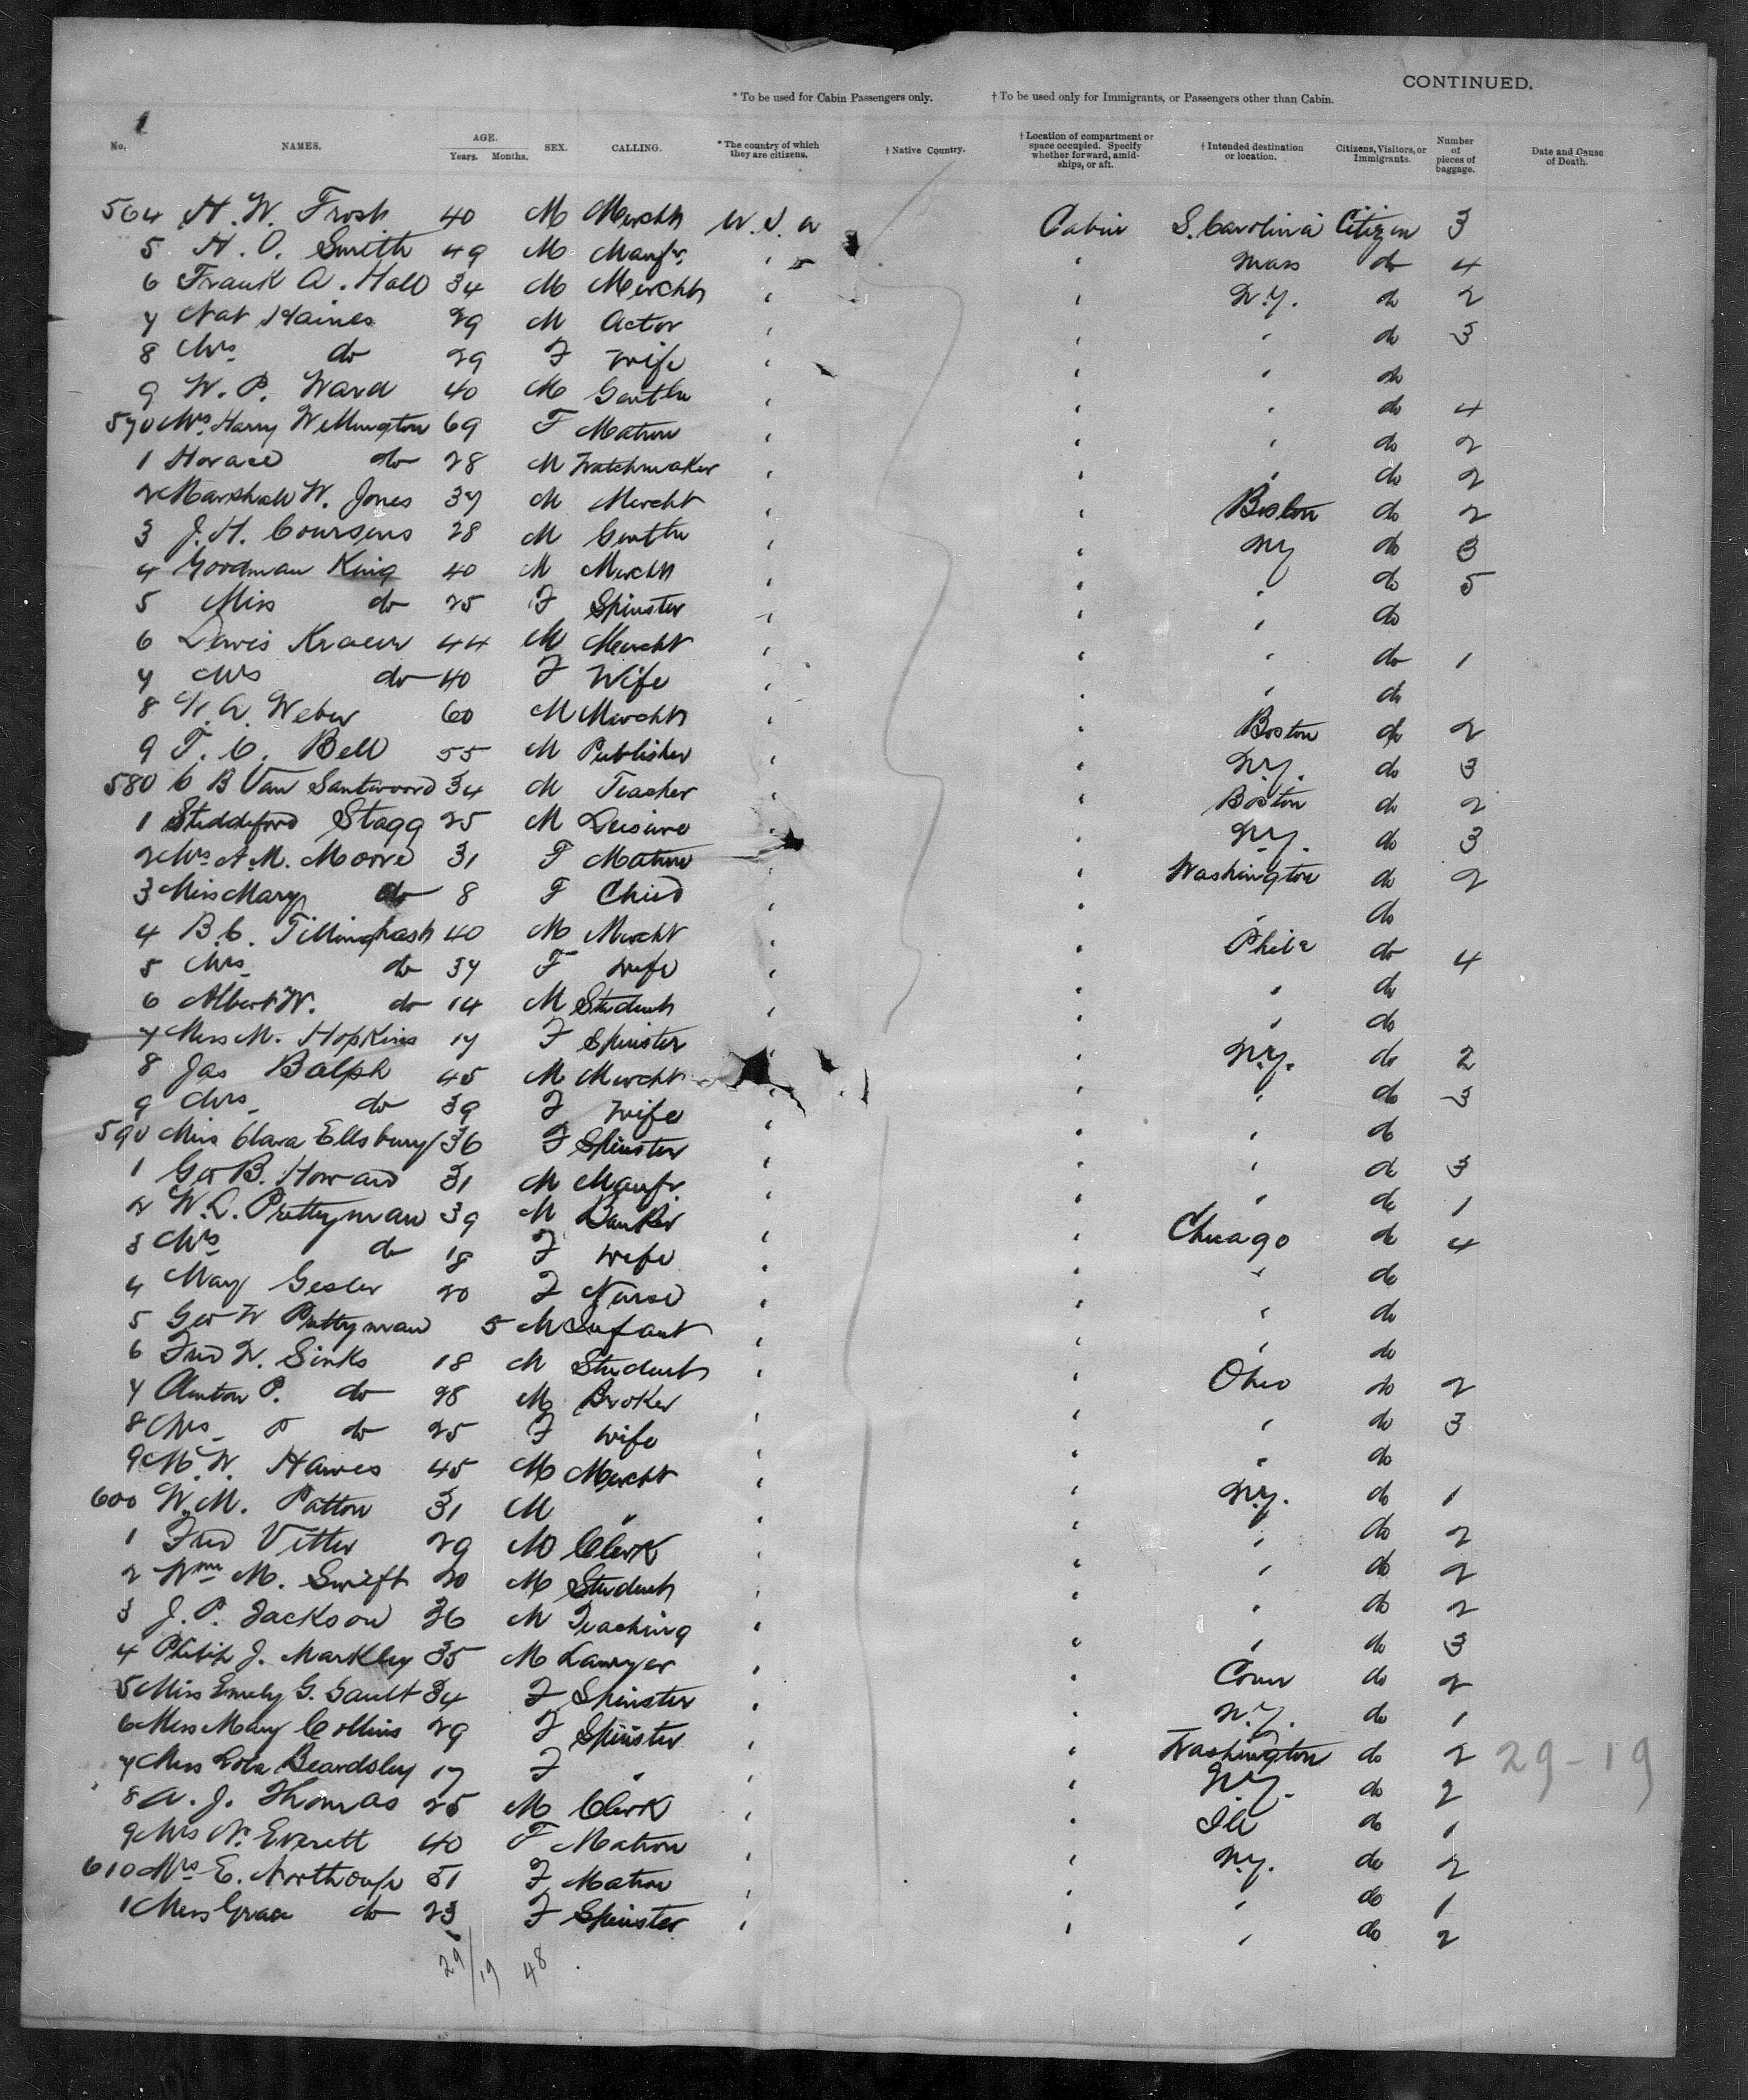 CONTINUED.
* To be used for Cabin Passengers only. † To be used only for Immigrants, or Passengers other than Cabin.
No. NAMES. AGE. Years. Months. SEX. CALLING. * The country of which they are citizens. † Native Country. † Location of compartment or space occupied. Specify whether forward, amidships, or aft. † Intended destination or location. Citizens, Visitors, or Immigrants. Number of pieces of baggage. Date and Cause of Death.
564 H. W. Frost 40 M Mercht U. S. A Cabin S. Carolina Citizen 3
5 H. O. Smith 49 M Manfr. " " Mass do 4
6 Frank A. Hall 34 M Mercht " " N.Y. do 2
7 Nat Haines 29 M Actor " " " do 3
8 Mrs do 29 F Wife " " " do
9 W. P. Ward 40 M Gentln " " " do 4
570 Mrs. Harry Wellington 69 F Matron " " " do 2
1 Horace do 28 M Watchmaker " " " do 2
2 Marshall W. Jones 37 M Mercht " " Boston do 2
3 J. H. Coursens 28 M Gentln " " NY do 3
4 Goodman King 40 M Mercht " " " do 5
5 Miss do 25 F Spinster " " " do
6 Lewis 44 M Mercht " " " do 1
7 Mrs do 40 F Wife " " " do
8 W. A. Weber 60 M Mercht " " Boston do 2
9 T. C. Bell 55 M Publisher " " N.Y. do 3
580 C B Van Santwoord 34 M Teacher " " Boston do 2
1 Studdeford Stagg 25 M Leisure " " N.Y. do 3
2 Mrs A. M. Moore 31 F Matron " " Washington do 2
3 Miss Mary do 8 F Child " " " do
4 B. C. Tillinghast 40 M Mercht " " Phila do 4
5 Mrs do 37 F Wife " " " do
6 Albert W. do 14 M Student " " " do
7 Miss M. Hopkins 17 F Spinster " " N.Y. do 2
8 Jas Balph 45 M Mercht " " " do 3
9 Mrs do 39 F Wife " " " do
590 Miss Clara Ellsbury 36 F Spinster " " " do 3
1 Geo B. Howard 31 M Manfr. " " " do 1
2 W. L. Prettyman 39 M Banker " " Chicago do 4
3 Mrs do 18 F Wife " " " do
4 May Gesler 20 F Nurse " " " do
5 Geo W Prettyman 5 M Infant " " " do
6 Fred W. Sinks 18 M Student " " Ohio do 2
7 Clinton P. do 28 M Broker " " " do 3
8 Mrs P do 25 F Wife " " " do
9 M. W. Hawes 45 M Mercht " " N.Y. do 1
600 W. M. Patton 31 M " " " " do 2
1 Fred Vetter 29 M Clerk " " " do 2
2 Wm M. Swift 20 M Student " " " do 2
3 J. P. Jackson 36 M Teaching " " " do 3
4 Philip J. Markley 35 M Lawyer " " Conn do 2
5 Miss Emily G. Gault 34 F Spinster " " N.Y. do 1
6 Miss Mary Collins 29 F Spinster " " Washington do 2 29-19
7 Miss Lola Beardsley 17 F " " " N.Y. do 2
8 A. J. Thomas 25 M Clerk " " Ill do 1
9 Mrs N. Everett 40 F Matron " " N.Y. do 2
610 Mrs E. Northoup 51 F Matron " " " do 1
1 Miss Grace do 23 F Spinster " " " do 2
29/19 48